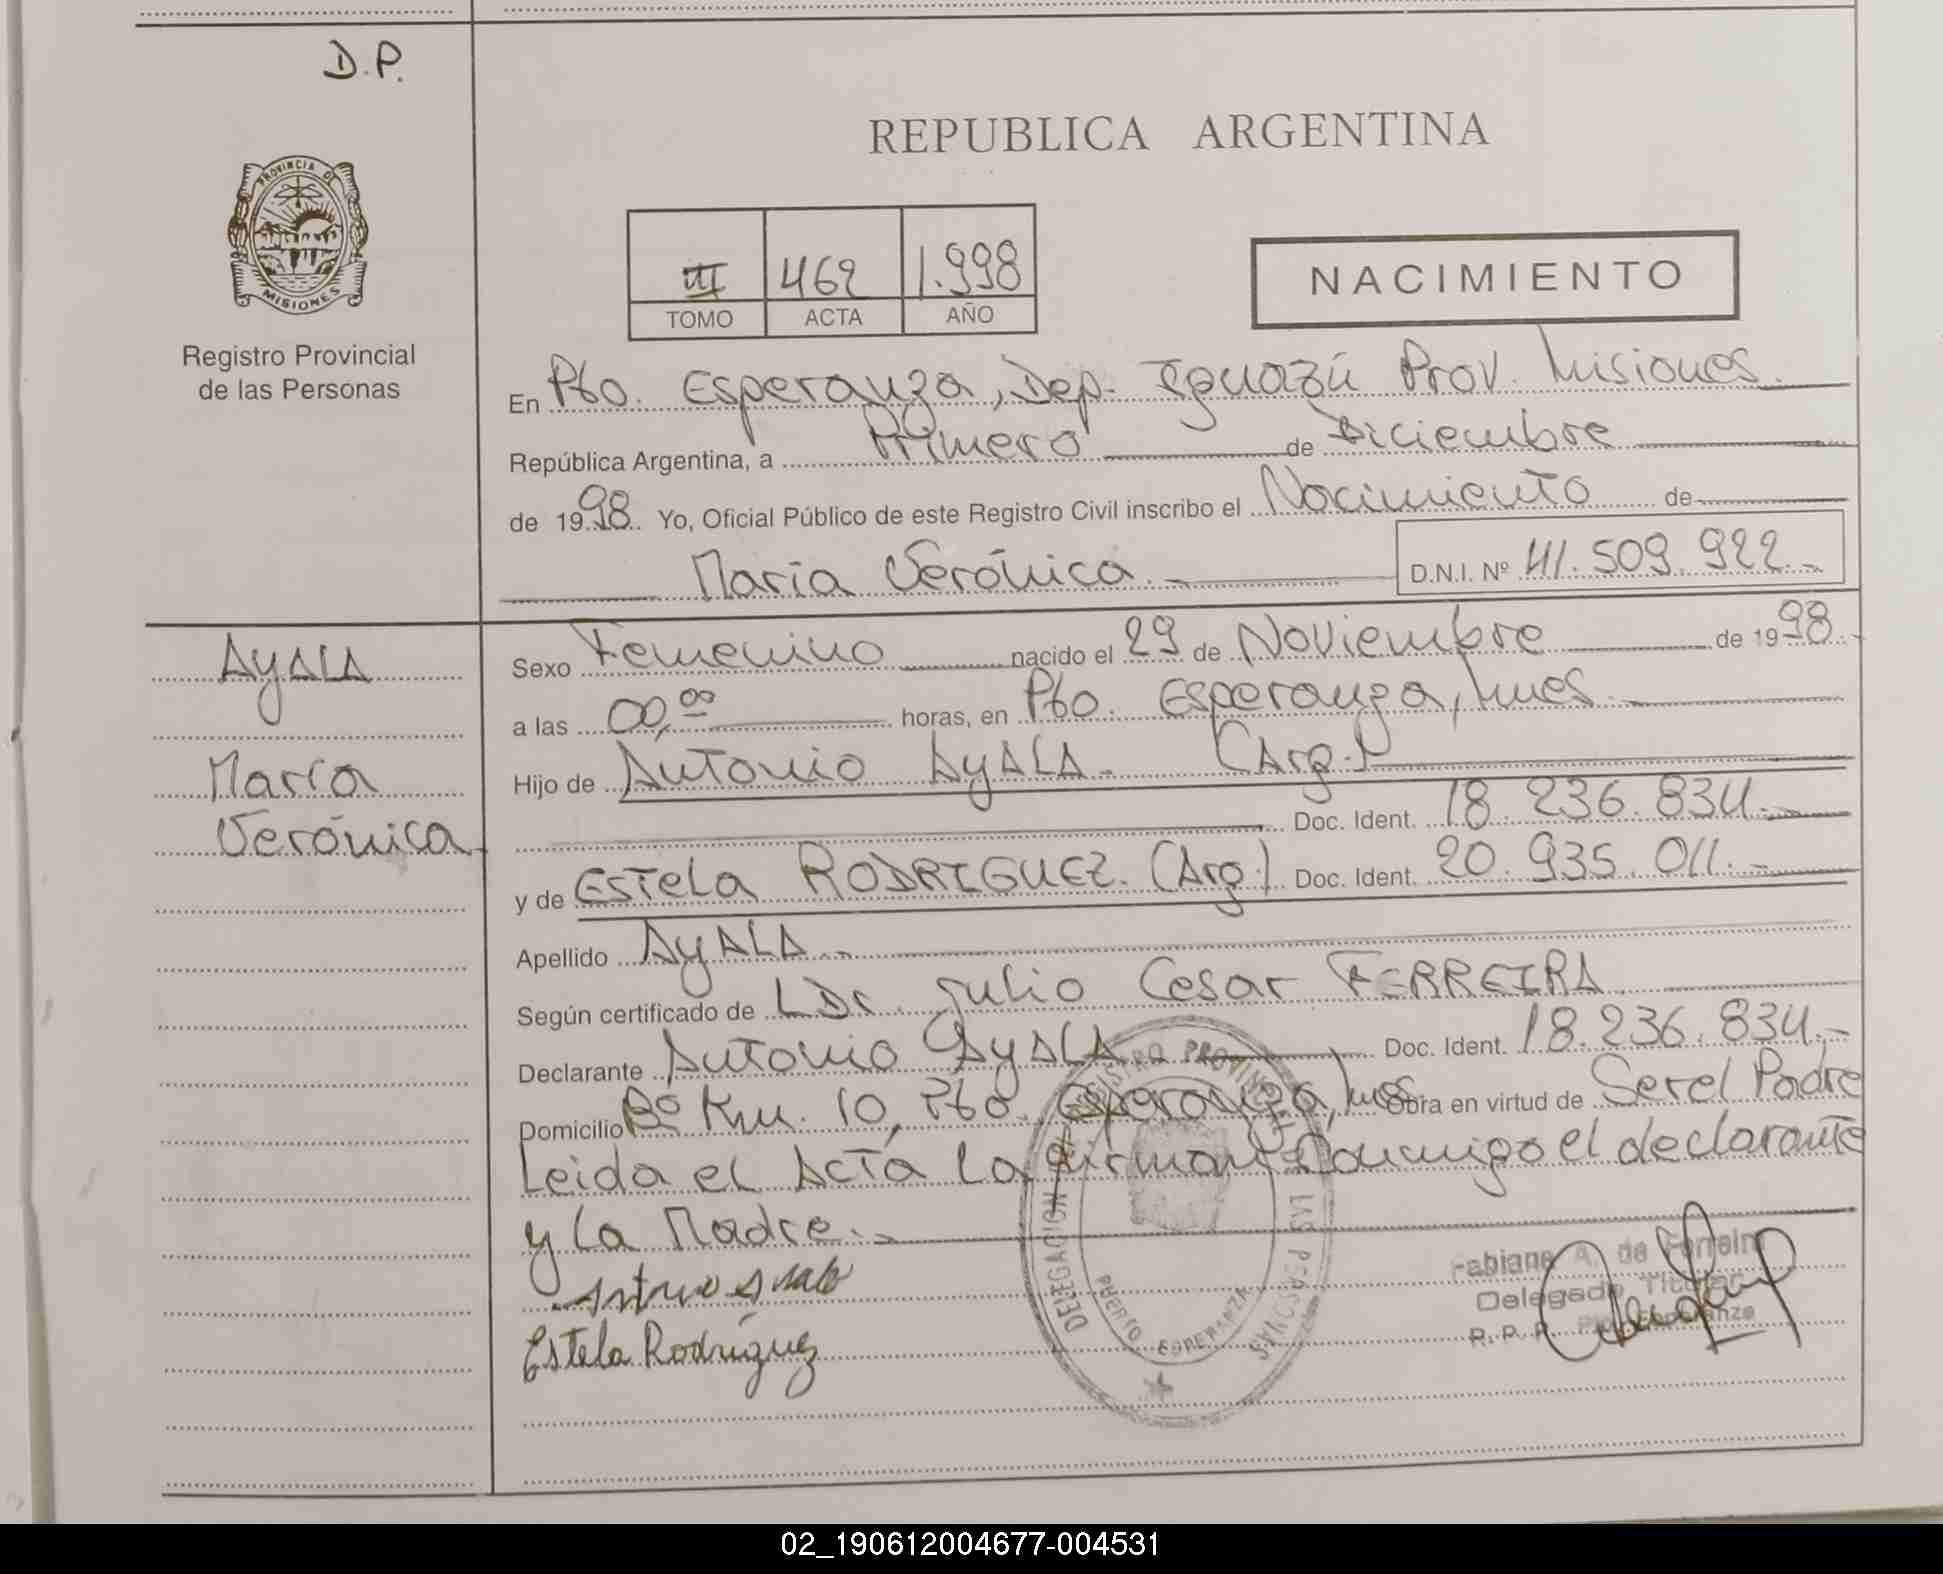 D.P.
PROVINCIA DE
MISIONES
Registro Provincial
de las Personas
REPUBLICA ARGENTINA
III 462 1.998
TOMO ACTA AÑO
NACIMIENTO
En Pto. Esperanza, Dep. Iguazú Prov. Misiones.
República Argentina, a Primero de Diciembre
de 1998 Yo, Oficial Público de este Registro Civil inscribo el Nacimiento de
María Verónica.- D.N.I. Nº 41.509.922.-
AyALA
María
Verónica
Sexo Femenino nacido el 29 de Noviembre de 1998.-
a las 00,00 horas, en Pto. Esperanza, Mnes.
Hijo de Antonio AyALA. (Arg.)
Doc. Ident. 18.236.834.-
y de EsTeLa RODRIGUEZ. (Arg.) Doc. Ident. 20.935.011.-
Apellido AyALA.-
Según certificado de LDr. Julio Cesar FERREIRA
Declarante Antonio AyALA Doc. Ident. 18.236.834.-
Domicilio Bº Km. 10, Pto. Esperanza, Mnes. Obra en virtud de Ser el Padre
Leida el Acta La firman conmigo el declarante
y La Madre.-
Estela Rodriguez
REGISTRO PROVINCIAL DE LAS PERSONAS
DELEGACION
PUERTO ESPERANZA
Fabiana A. de Ferreira
Delegado Titular
R.P.P. Pto. Esperanza
02_190612004677-004531